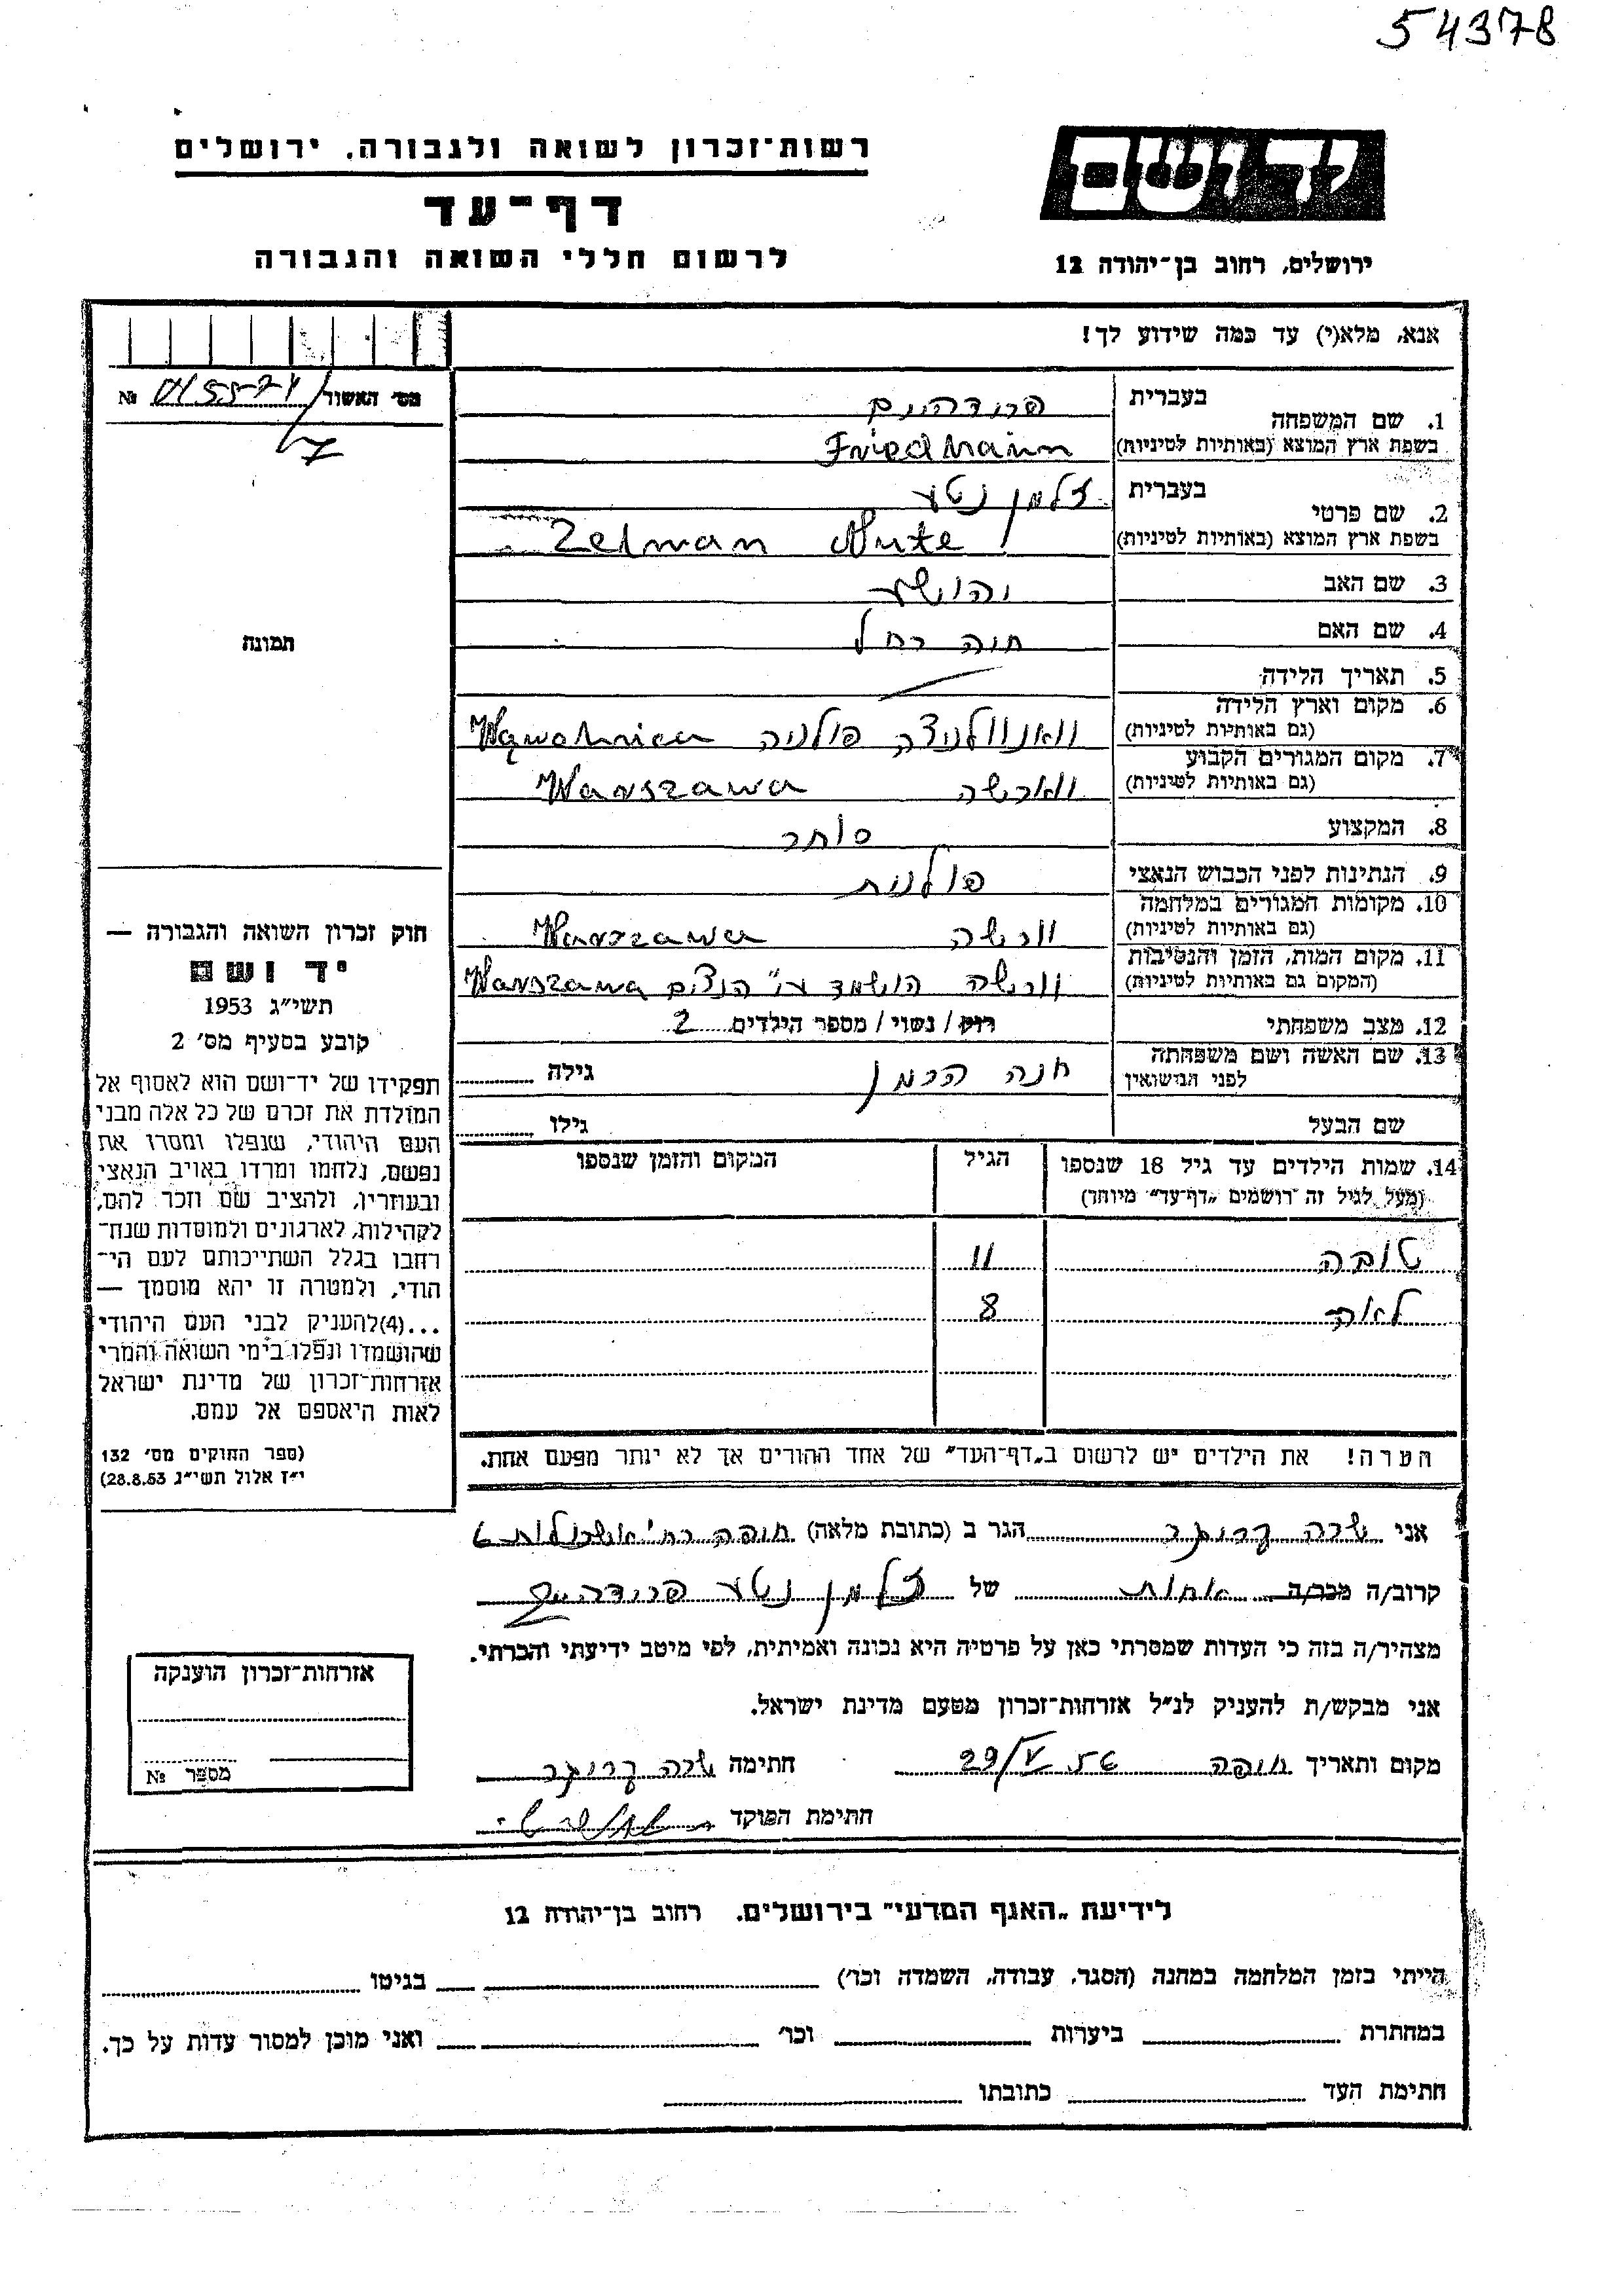 54378
רשות־זכרון לשואה ולגבורה, ירושלים
יד ושם
דף־עד
לרשום חללי השואה והגבורה
ירושלים, רחוב בן־יהודה 12
אנא, מלא(י) עד כמה שידוע לך!
מס' האשור №
1. שם המשפחה
בעברית
בשפת ארץ המוצא (באותיות לטיניות) Friedhaim
2. שם פרטי
בעברית זלמן נטע
בשפת ארץ המוצא (באותיות לטיניות) Zelman Nute
3. שם האב יהושע
4. שם האם חוה רחל
5. תאריך הלידה
6. מקום וארץ הלידה
(גם באותיות לטיניות) וואנוולניצה פולניה Wąwolnica
7. מקום המגורים הקבוע
(גם באותיות לטיניות) ווארשה Warszawa
8. המקצוע סוחר
9. הנתינות לפני הכבוש הנאצי פולנית
10. מקומות המגורים במלחמה
(גם באותיות לטיניות) וורשה Warszawa
11. מקום המות, הזמן והנסיבות
(המקום גם באותיות לטיניות) וורשה הושמד ע"י הנצים Warszawa
12. מצב משפחתי רוק / נשוי / מספר הילדים 2
13. שם האשה ושם משפחתה
לפני הנישואין חנה הכמן גילה
שם הבעל גילו
14. שמות הילדים עד גיל 18 שנספו הגיל המקום והזמן שנספו
(מעל לגיל זה רושמים „דף־עד" מיוחד)
טובה 11
לאה 8
הערה! את הילדים יש לרשום ב„דף־העד" של אחד ההורים אך לא יותר מפעם אחת.
תמונה
חוק זכרון השואה והגבורה —
יד ושם
תשי"ג 1953
קובע בסעיף מס' 2
תפקידו של יד־ושם הוא לאסוף אל
המולדת את זכרם של כל אלה מבני
העם היהודי, שנפלו ומסרו את
נפשם, נלחמו ומרדו באויב הנאצי
ובעוזריו, ולהציב שם וזכר להם,
לקהילות, לארגונים ולמוסדות שנח־
רחבו בגלל השתייכותם לעם הי־
הודי, ולמטרה זו יהא מוסמך —
...(4)להעניק לבני העם היהודי
שהושמדו ונפלו בימי השואה והמרי
אזרחות־זכרון של מדינת ישראל
לאות היאספם אל עמם.
(ספר החוקים מס' 132
י"ז אלול תשי"ג 28.8.53)
אני שרה הגר ב (כתובת מלאה) חיפה רח' אשכולות 6
קרוב/ה מכר/ה אחות של זלמן נטע
מצהיר/ה בזה כי העדות שמסרתי כאן על פרטיה היא נכונה ואמיתית, לפי מיטב ידיעתי והכרתי.
אני מבקש/ת להעניק לנ"ל אזרחות־זכרון מטעם מדינת ישראל.
מקום ותאריך חיפה 29/V 56 חתימה שרה
חתימת הפוקד
אזרחות־זכרון הוענקה
מספר №
לידיעת „האגף המדעי" בירושלים, רחוב בן־יהודה 12
הייתי בזמן המלחמה במחנה (הסגר, עבודה, השמדה וכו') בגיטו
במחתרת ביערות וכו' ואני מוכן למסור עדות על כך.
חתימת העד כתובתו